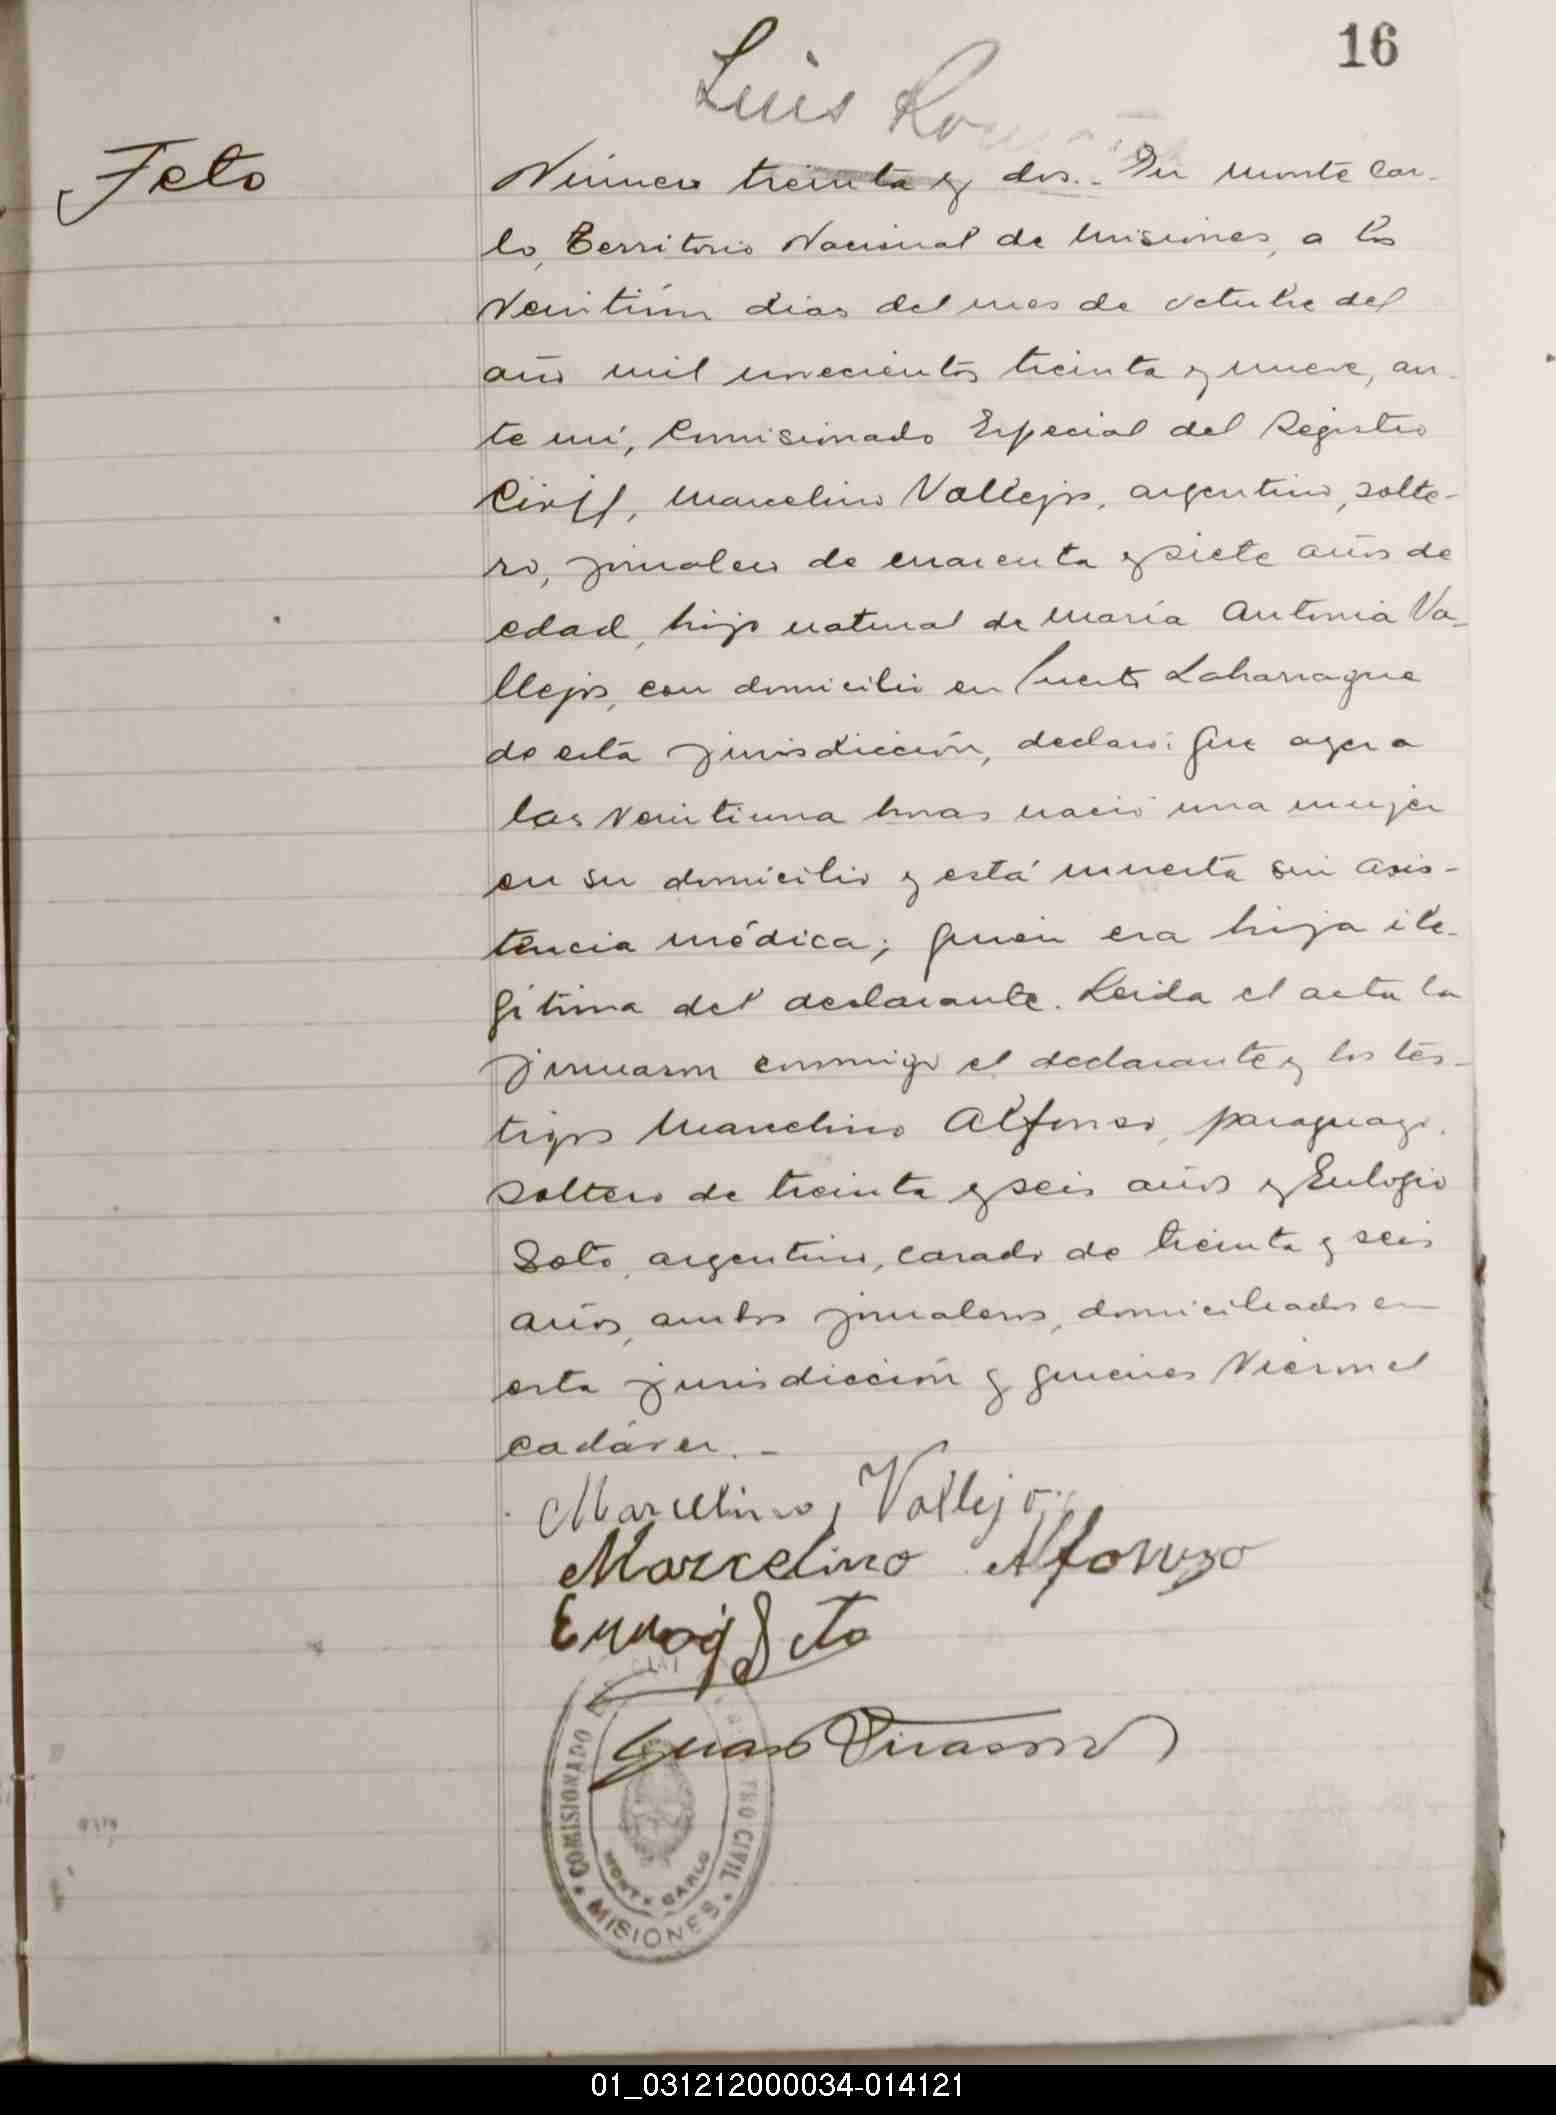 16
Luis Ro
Feto
Número treinta y dos.- En Monte Car-
lo, Territorio Nacional de Misiones, a los
veintiún dias del mes de octubre del
año mil novecientos treinta y nueve, an-
te mí, Comisionado Especial del Registro
Civil, Marcelino Vallejos, argentino, solte-
ro, jornalero de cuarenta y siete años de
edad, hijo natural de María Antonia Va-
llejos, con domicilio en Puerto Laharrague
de esta jurisdicción, declaró: Que ayer a
las veintiuna horas nació una mujer
en su domicilio y está muerta sin asis-
tencia médica; quien era hija ile-
gítima del declarante. Leida el acta la
firmaron conmigo el declarante y los tes-
tigos Marcelino Alfonso, paraguayo,
soltero de treinta y seis años y Eulogio
Soto, argentino, casado de treinta y seis
años, ambos jornaleros, domiciliados en
esta jurisdicción y quienes vieron el
cadáver.-
Marcelino Vallejo
Marcelino Alfonzo
Soto
Juan
COMISIONADO
REGISTRO CIVIL
MONTE CARLO
MISIONES
01_031212000034-014121